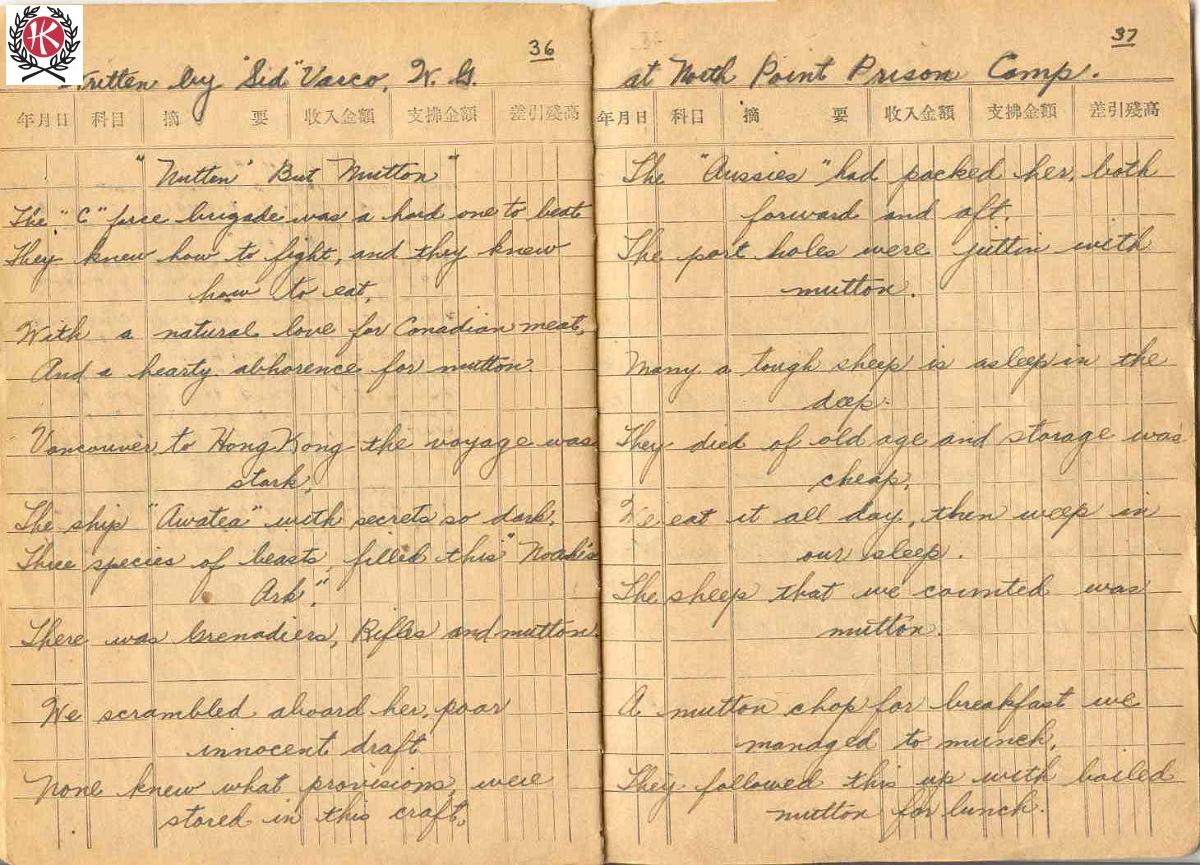 HK
36
Written by "Sid" Varco, W. G.
年月日 科目 摘要 收入金額 支拂金額 差引残高
"Nutten' But Mutton"
The "C" force brigade was a hard one to beat
They knew how to fight, and they knew
how to eat,
With a natural love for Canadian meat,
And a hearty abhorence for mutton.
Vancouver to Hong Kong the voyage was
stark,
The ship "Awatea" with secrets so dark,
Three species of beasts, filled this "Noah's
Ark".
There was Grenadiers, Rifles and mutton.
We scrambled aboard her, poor
innocent draft
None knew what provisions, were
stored in this craft,
37
at North Point Prison Camp.
年月日 科目 摘要 收入金額 支拂金額 差引残高
The "Aussies" had packed her, both
forward and aft.
The port holes were juttin with
mutton.
Many a tough sheep is asleep in the
deep.
They died of old age and storage was
cheap,
We eat it all day, then weep in
our sleep.
The sheep that we counted was
mutton.
A mutton chop for breakfast we
managed to munch,
They followed this up with boiled
mutton for lunch.